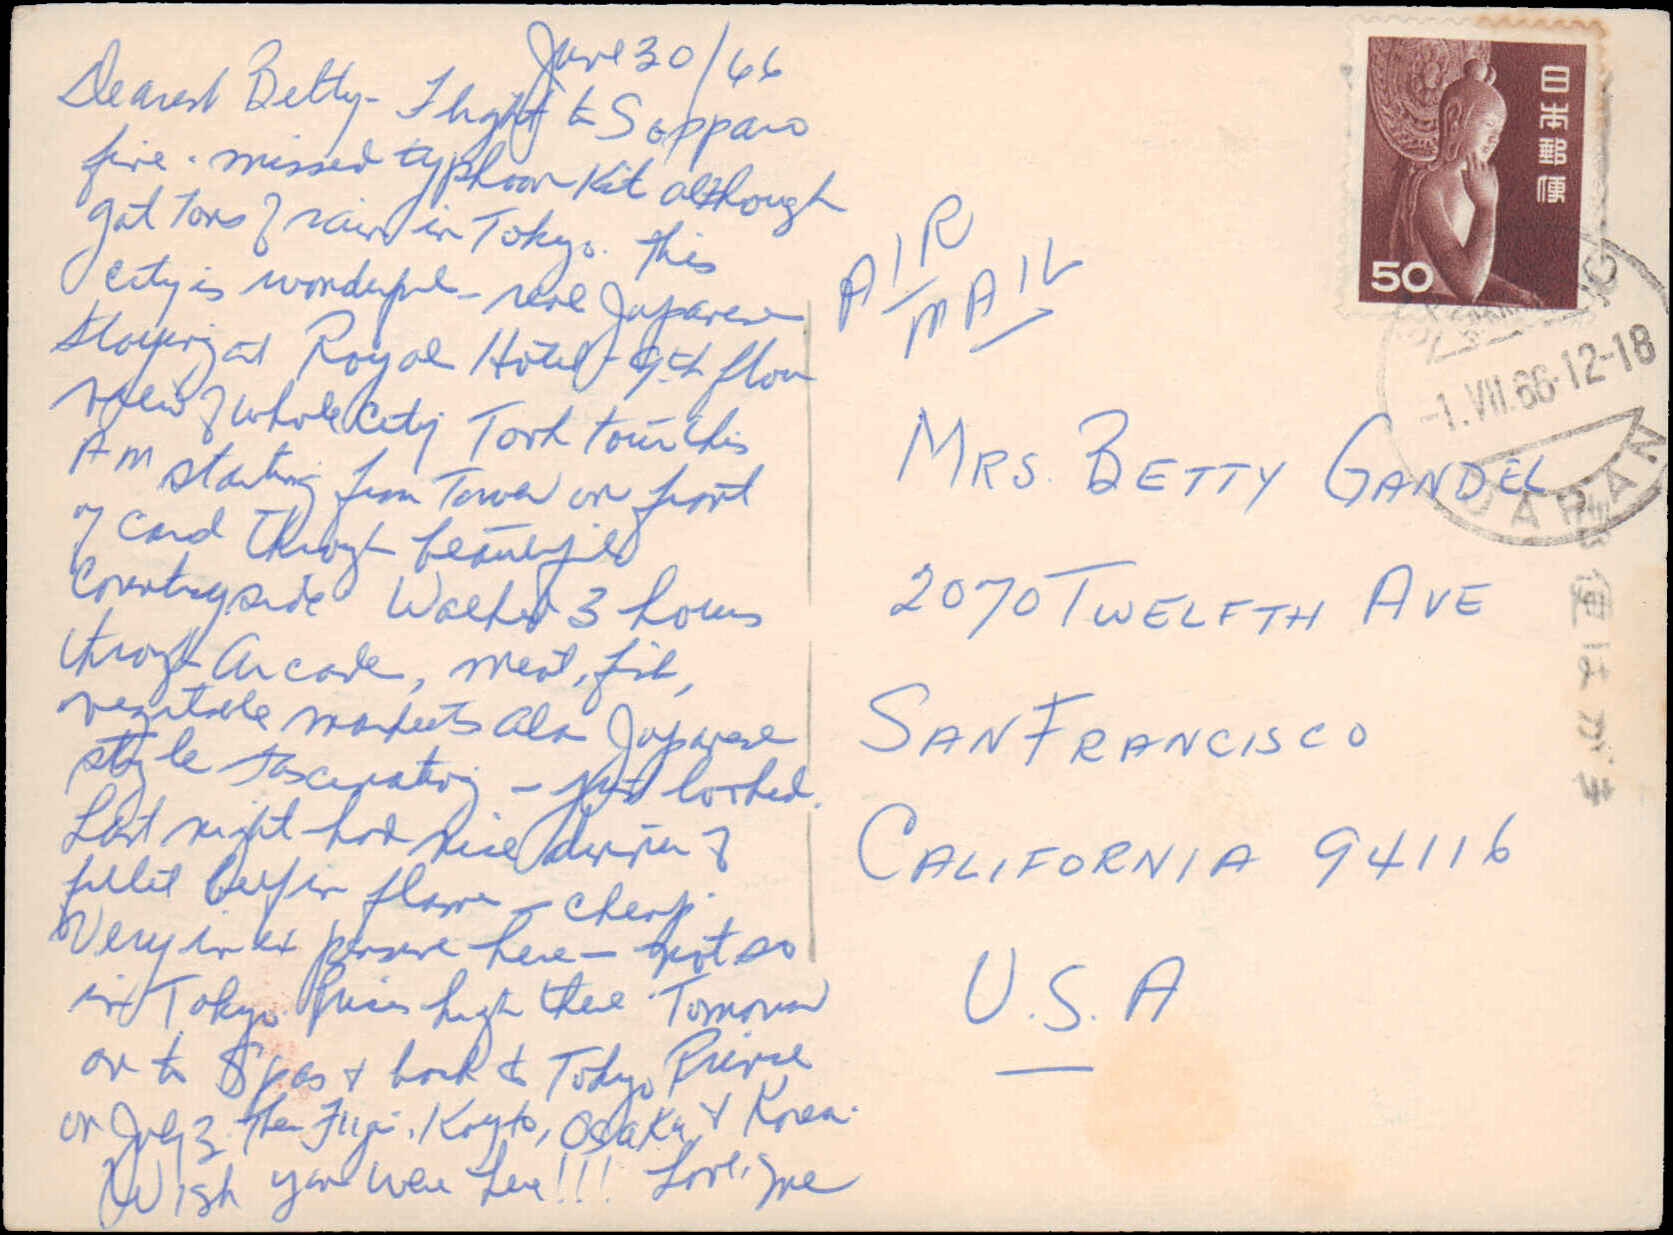 June 30/66
Dearest Betty- Flight to Sapparo
fine. missed typhoon Kit although
got tons of rain in Tokyo. This
city is wonderful - real Japanese
Staying at Royal Hotel - 9th floor
view of whole city Took tour this
AM starting from Tower on front
of card through beautiful
Countryside Walked 3 hours
through Arcade, meat, fish,
vegetable markets also Japanese
style fascinating - just looked.
Last night had nice dinner of
fillet beef in flame - cheap.
Very in expensive here - not so
in Tokyo. Prices high there. Tomorrow
on to Spas & back to Tokyo Prince
on July 3. Then Fuji, Koyto, Osaka & Korea.
Wish you were here!!! Love,
AIR
MAIL
MRS. BETTY GANDEL
2070 TWELFTH AVE
SAN FRANCISCO
CALIFORNIA 94116
U.S.A
日本郵便
50
-1.VII.66.12-18
JAPAN
便はがき